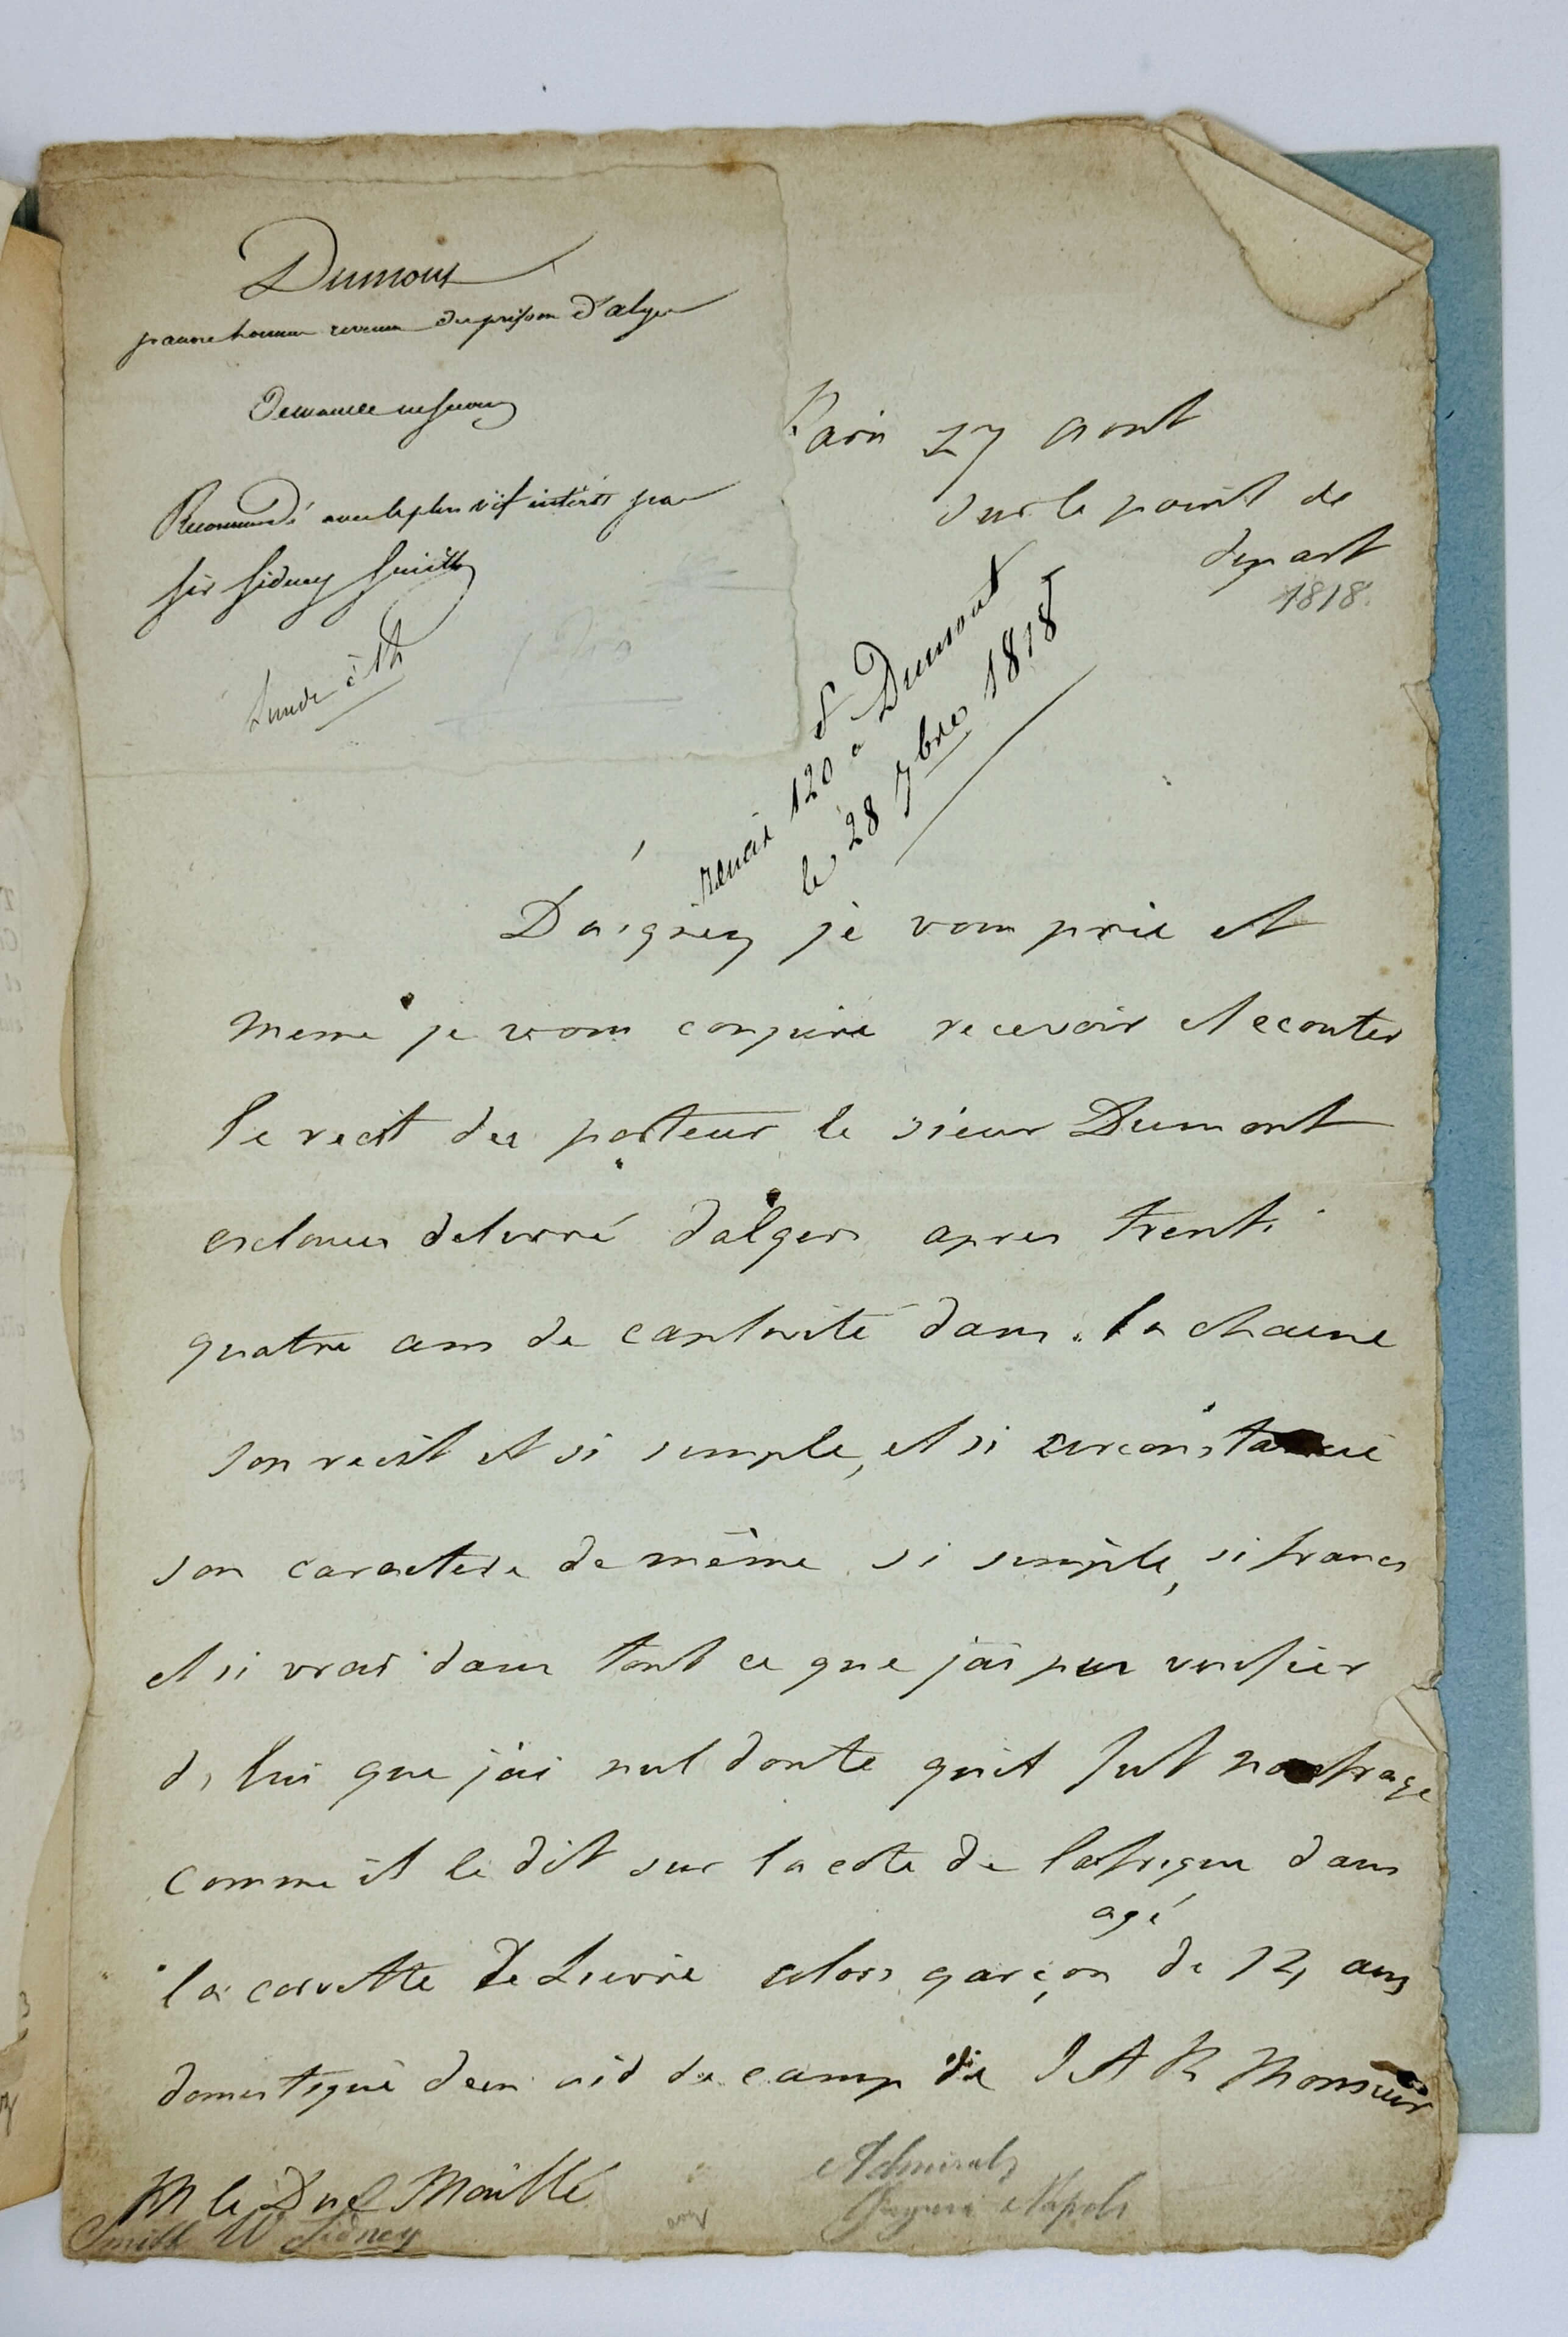 Dumont
pauvre homme revenu des prison d'alger
Demande un secours
Recommandé avec le plus vif intérêt par
Sir Sidney Smith
Lundi à 12
Paris 27 Aout
sur le point de
depart
1818.
remis 120 à Dumont
le 28 7bre 1818
Daignez je vous prie et
meme je vous conjure recevoir et ecouter
le recit du porteur le sieur Dumont
esclave delivré d'alger apres trente
quatre ans de captivité dans la chaine
son recit et si simple, et si circonstancié
son caractere de même si simple, si franc
et si vrai dans tout ce que j'ai pu verifier
de lui que j'ai nul doute qu'il fut naufragé
comme il le dit sur la cote de l'afrique dans
la corvette Le Lievre alors garçon agé de 14 ans
domestique d'un aid de camp de S A R Monsieur
M le Duc Maillé
Smith W Sidney
Admiral
Napoli